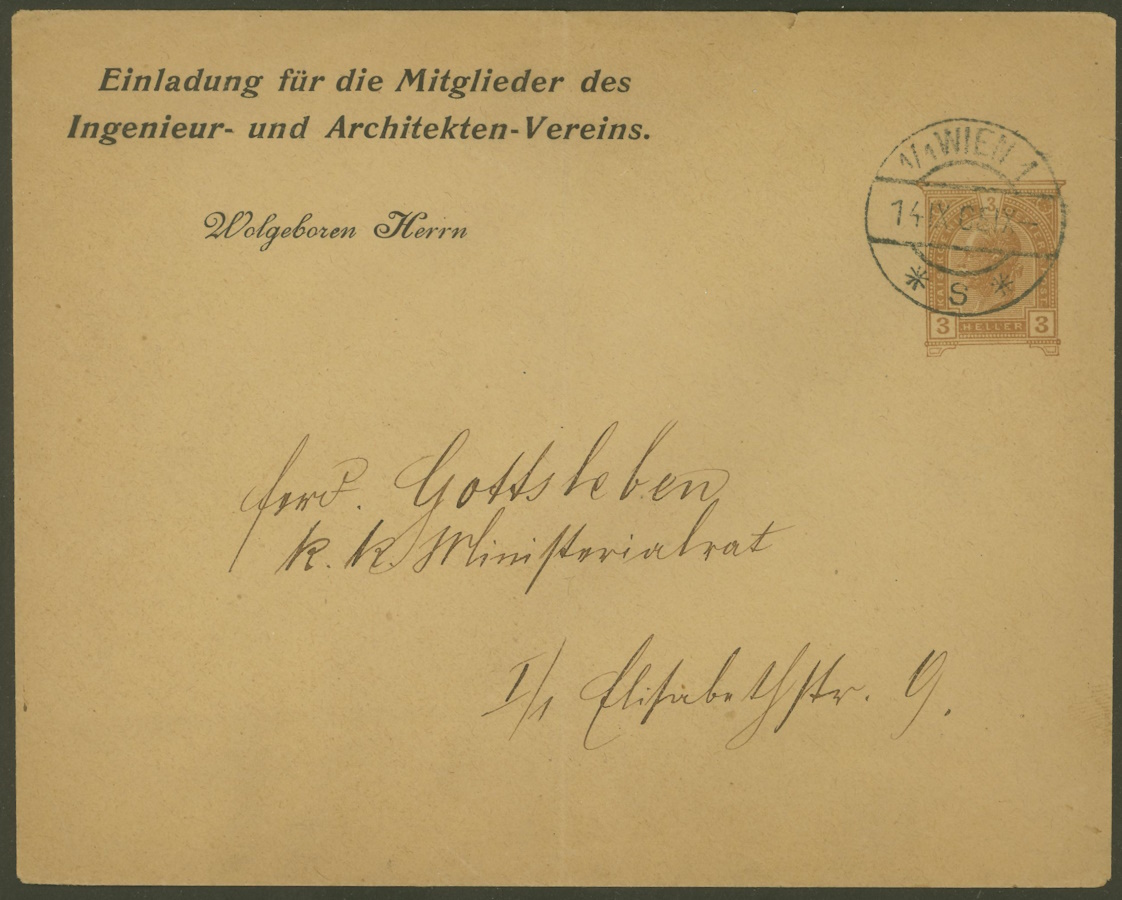 Einladung für die Mitglieder des
Ingenieur- und Architekten-Vereins.
Wolgeboren Herrn
1/1 WIEN 1
14
3
* S *
3 HELLER 3
Ferd. Gottsleben
k. k. Ministerialrat
I/1 Elisabethstr. 9.